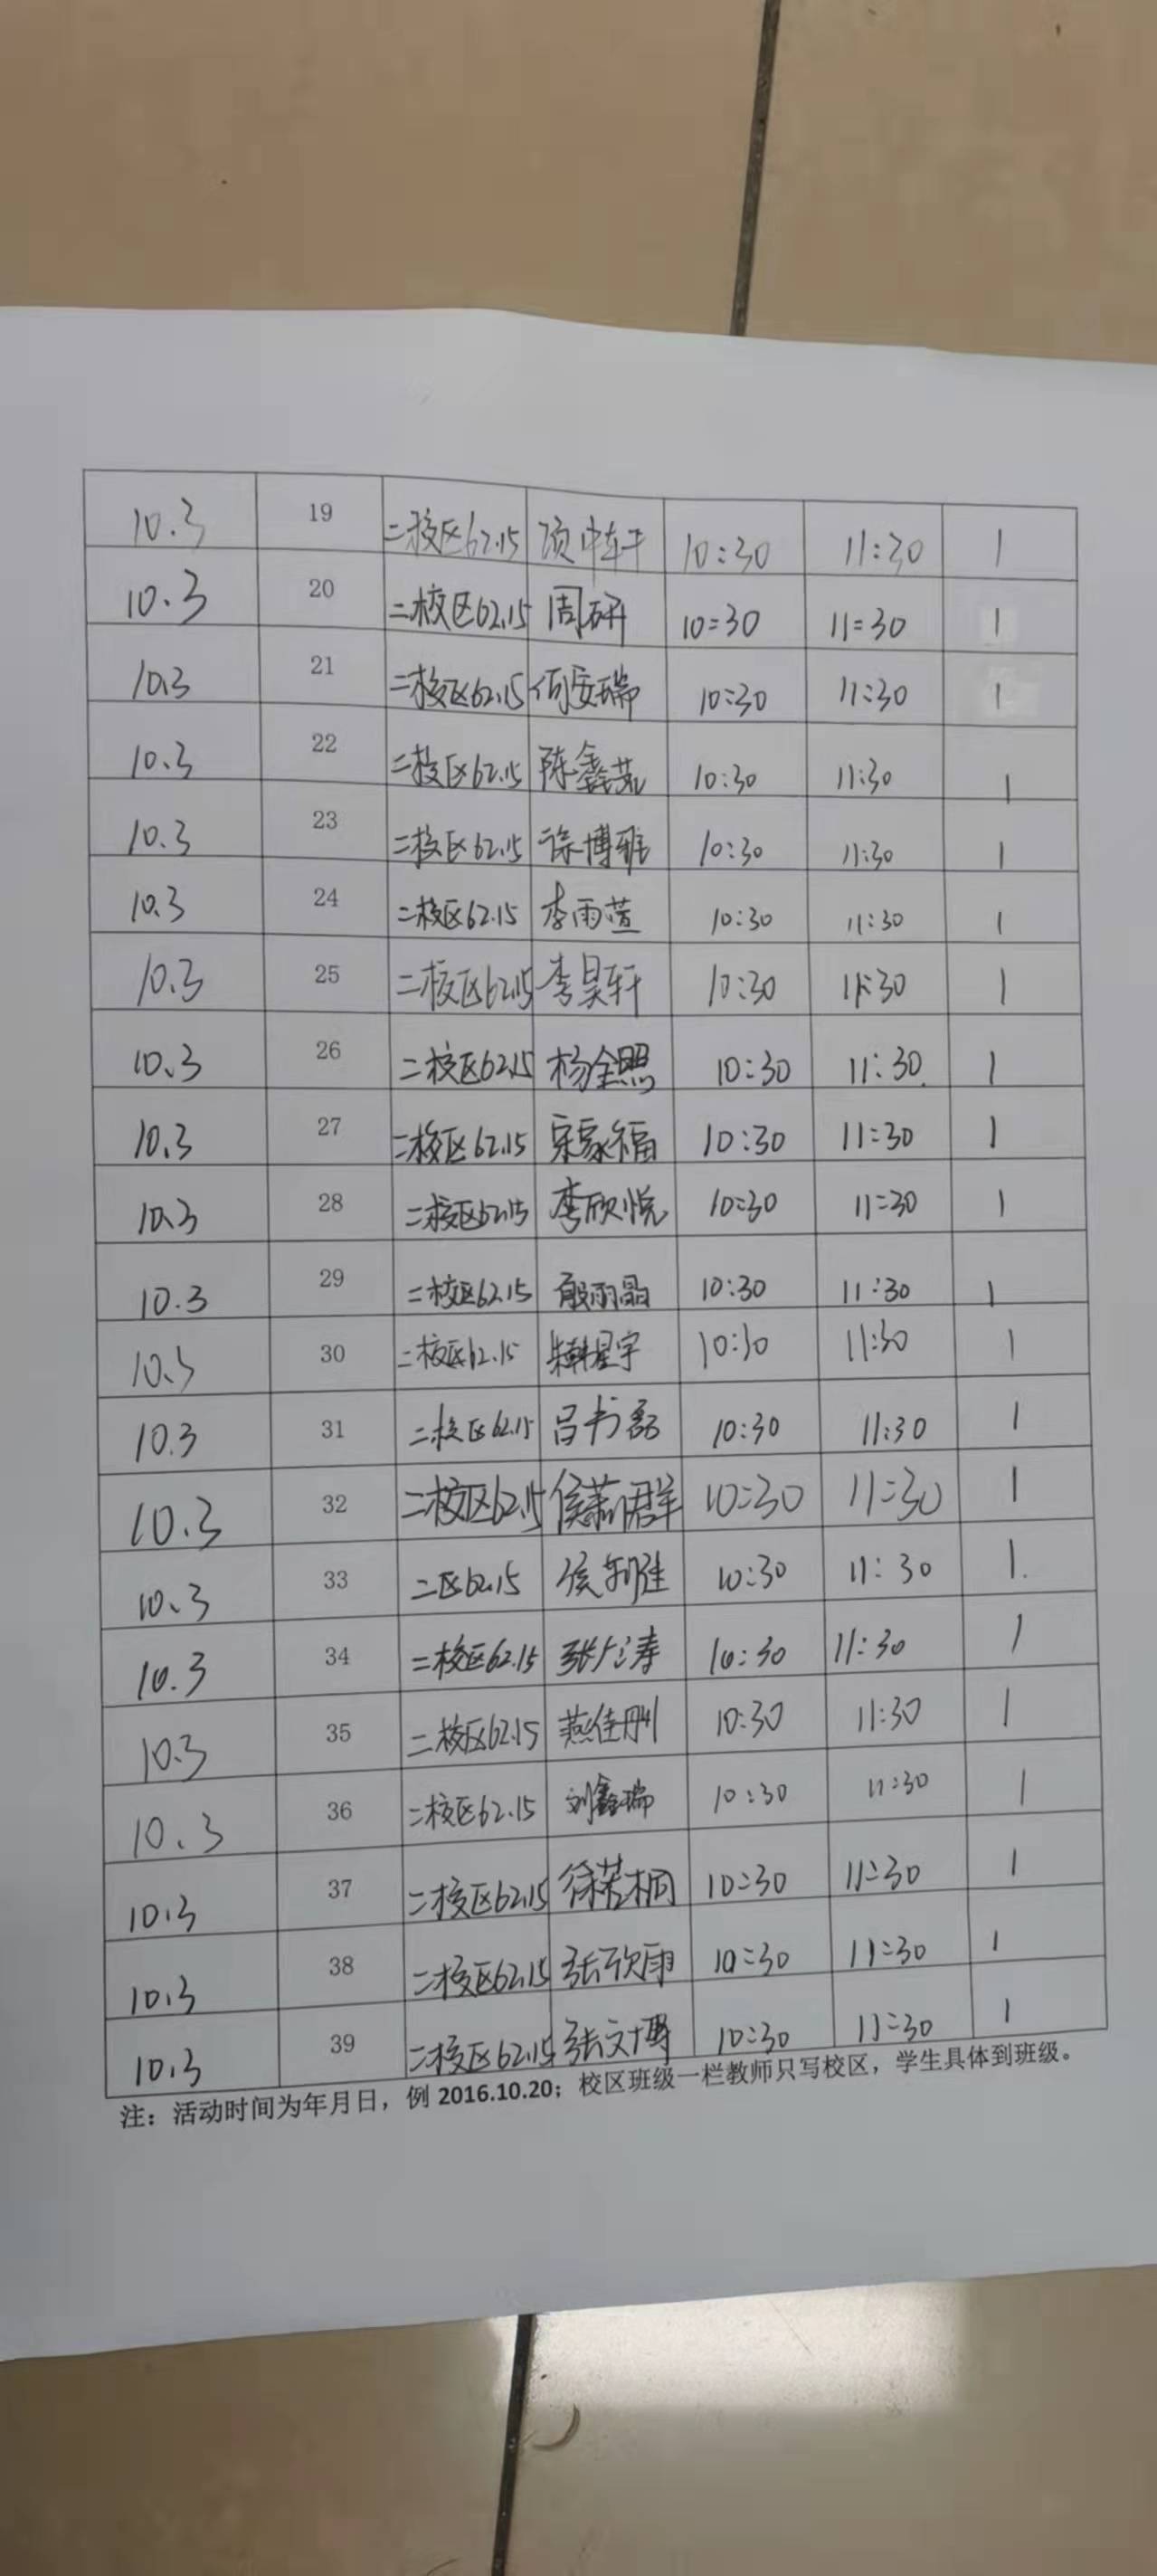 10.3 19 二校区62.15 10:30 11:30 1
10.3 20 二校区62.15 周研 10:30 11:30 1
10.3 21 二校区62.15 何安瑞 10:30 11:30 1
10.3 22 二校区62.15 陈鑫 10:30 11:30 1
10.3 23 二校区62.15 徐博雅 10:30 11:30 1
10.3 24 二校区62.15 李雨萱 10:30 11:30 1
10.3 25 二校区62.15 李昊轩 10:30 11:30 1
10.3 26 二校区62.15 杨全照 10:30 11:30 1
10.3 27 二校区62.15 宋家福 10:30 11:30 1
10.3 28 二校区62.15 李欣悦 10:30 11:30 1
10.3 29 二校区62.15 殷雨晶 10:30 11:30 1
10.3 30 二校区62.15 韩星宇 10:30 11:30 1
10.3 31 二校区62.15 吕书磊 10:30 11:30 1
10.3 32 二校区62.15 侯萧群 10:30 11:30 1
10.3 33 二区62.15 侯 10:30 11:30 1
10.3 34 二校区62.15 张广涛 10:30 11:30 1
10.3 35 二校区62.15 燕佳 10:30 11:30 1
10.3 36 二校区62.15 刘鑫瑞 10:30 11:30 1
10.3 37 二校区62.15 徐若桐 10:30 11:30 1
10.3 38 二校区62.15 张歆雨 10:30 11:30 1
10.3 39 二校区62.15 张文博 10:30 11:30 1
注：活动时间为年月日，例 2016.10.20；校区班级一栏教师只写校区，学生具体到班级。